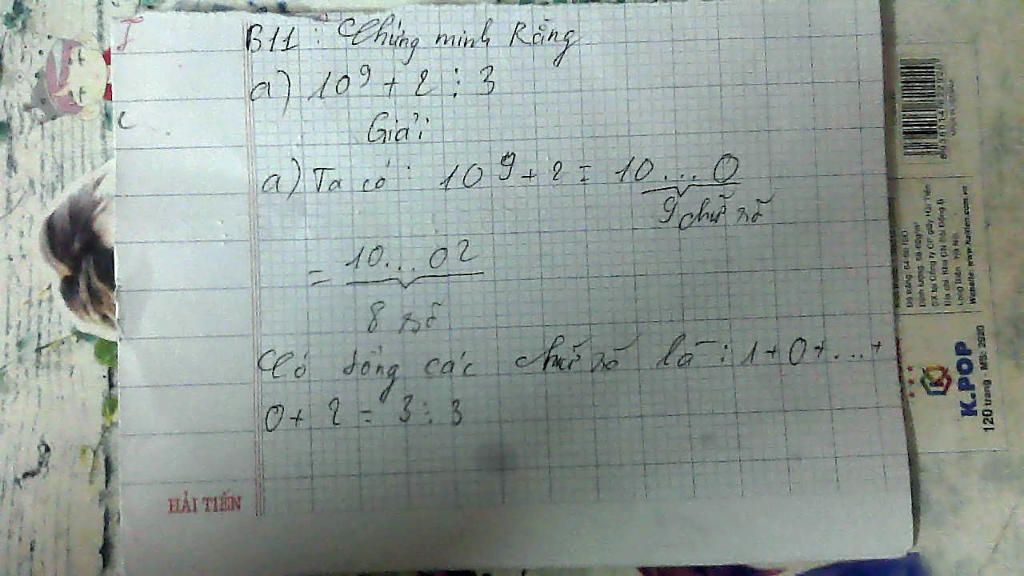 B11: Chứng minh Rằng
a) 10⁹ + 2 ⋮ 3
Giải
a) Ta có: 10⁹ + 2 = 10...0
9 chữ số
= 10...02
8 số
Có tổng các chữ số là: 1+0+...+
0+2 = 3 ⋮ 3
HẢI TIẾN
K.POP
120 trang - MS: 2520